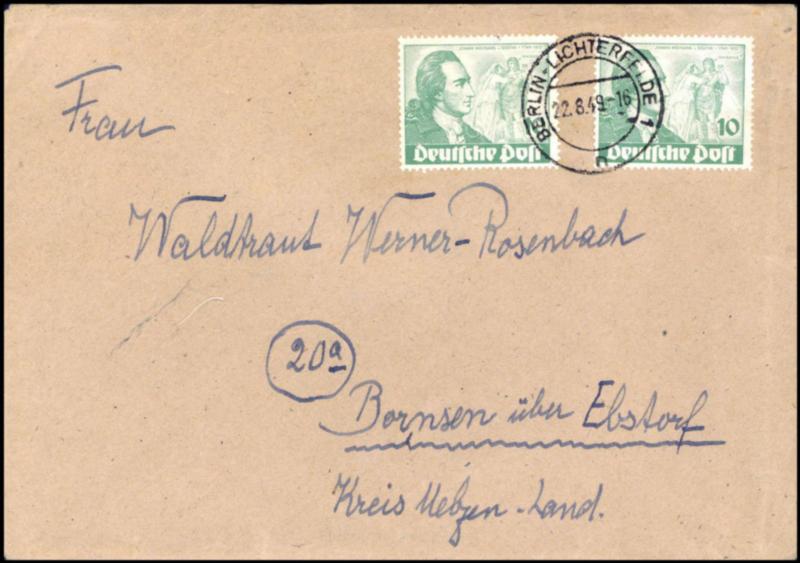 BERLIN-LICHTERFELDE 1
22.8.49.-16
n
Deutsche Post
10
Deutsche Post
Frau
Waldtraut Werner-Rosenbach
20a
Bornsen über Ebstorf
Kreis Uelzen-Land.